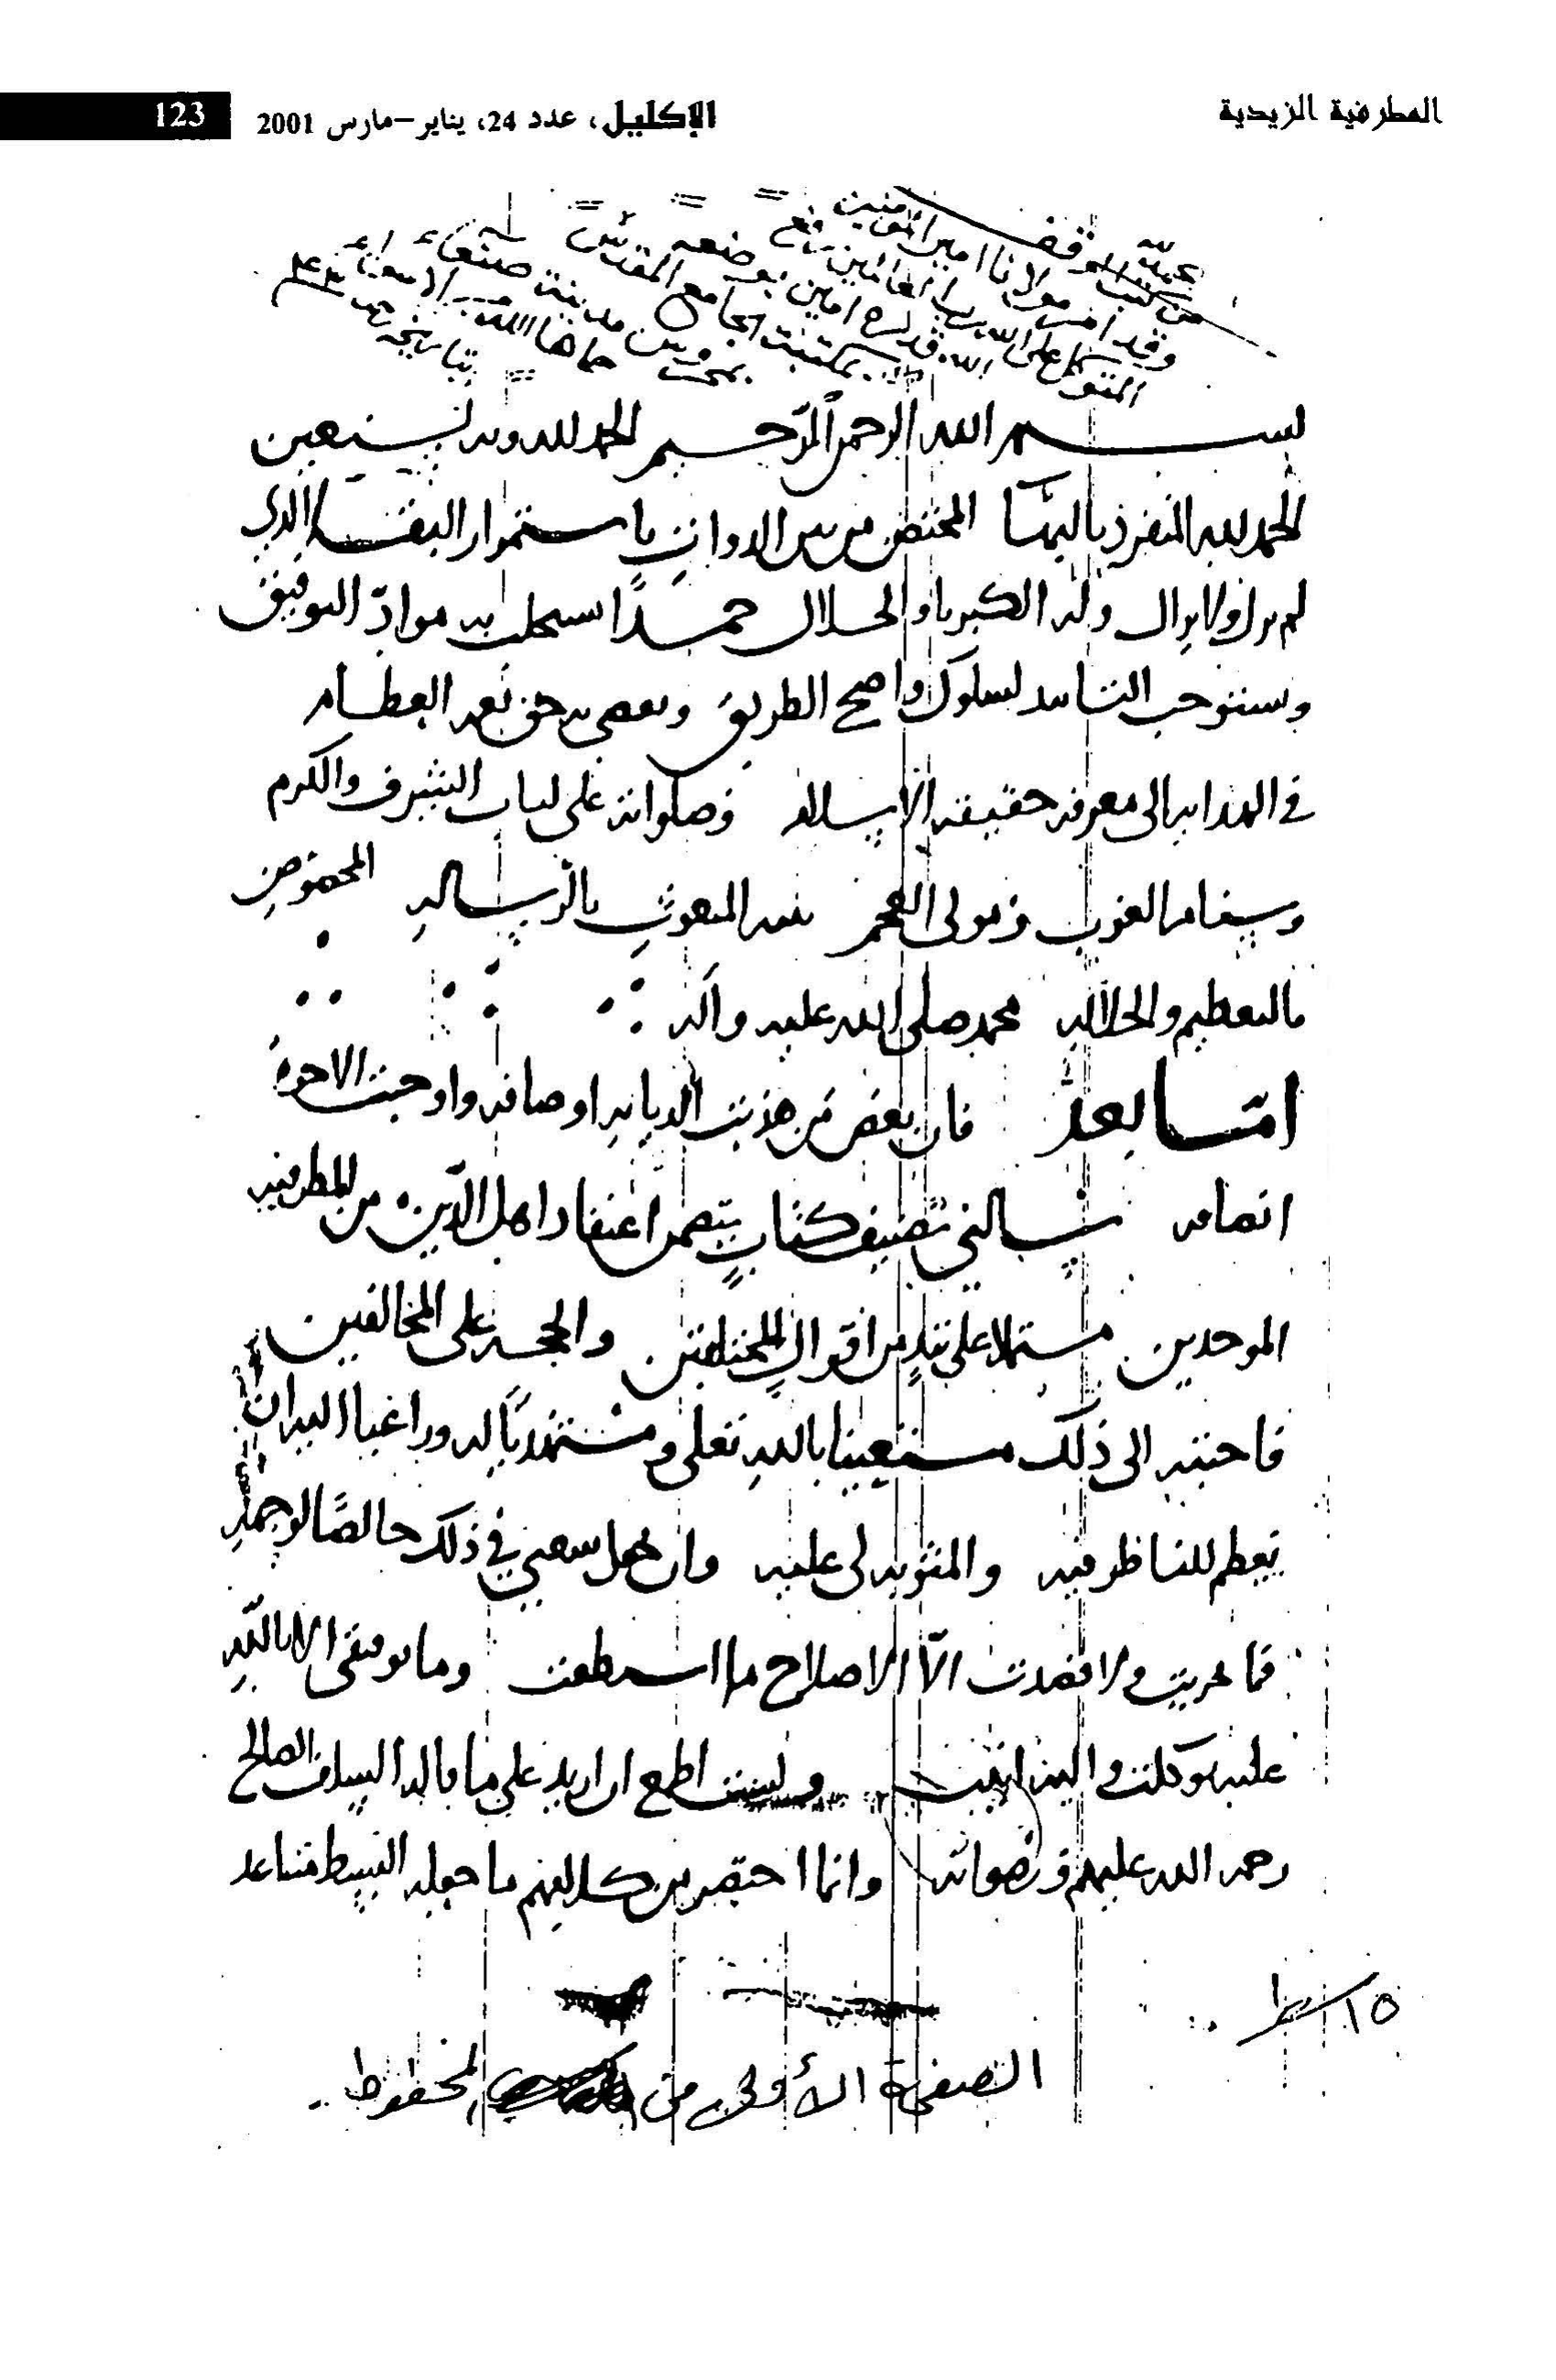 المطرفية الزيدية
الإكليل، عدد 24، يناير–مارس 2001
123
من كتب الوقف
وقد أمر مولانا امير المؤمنين
المتوكل على الله رب العالمين
بمكتبة الجامع المقدس
بمحروس مدينة صنعاء
حماها الله
بتاريخه
بسم الله الرحمن الرحيم الحمد لله وبه نستعين
الحمد لله المنفرد بالبهاء المختص من بين الذوات باستمرار البقاء الذي
لم يزل ولا يزال وله الكبرياء والجلال حمدًا نستجلب به مواد التوفيق
ونستوجب التأييد لسلوك واضح الطريق ونقضي به حق نعمه العظام
في الهداية الى معرفة حقيقة الاسلام وصلواته على لباب الشرف والكرم
وسنام العرب ومولى العجم نبيه المبعوث بالرسالة المخصوص
بالتعظيم والجلالة محمد صلى الله عليه وآله
امّا بعد فان بعض من هذبت الديانة اوصافه واوجبت الاخوة
انصافه سالني تصنيف كتابٍ يتضمن اعتقاد اهل الدين من المطرفية
الموحدين مشتملا على نبذٍ من اقوال المختلفين والحجة على المخالفين
فاجبته الى ذلك مستعينا بالله تعلى ومستهديًا له وراغبا اليه ان
يعظم للناظر فيه والمثوبة لي عليه وان يجعل سعيي في ذلك خالصًا لوجهه
فما تحريت ولا قصدت الّا الاصلاح ما استطعت وما توفيقي الا بالله
عليه توكلت واليه انيب ولست اطمع ان ازيد على ما قاله السلف الصالح
رحمة الله عليهم ورضوانه وانما اختصر من كلامهم ما جعله البسيط متباعد
١٥ سطرا
الصفحة الأولى من المخطوط.